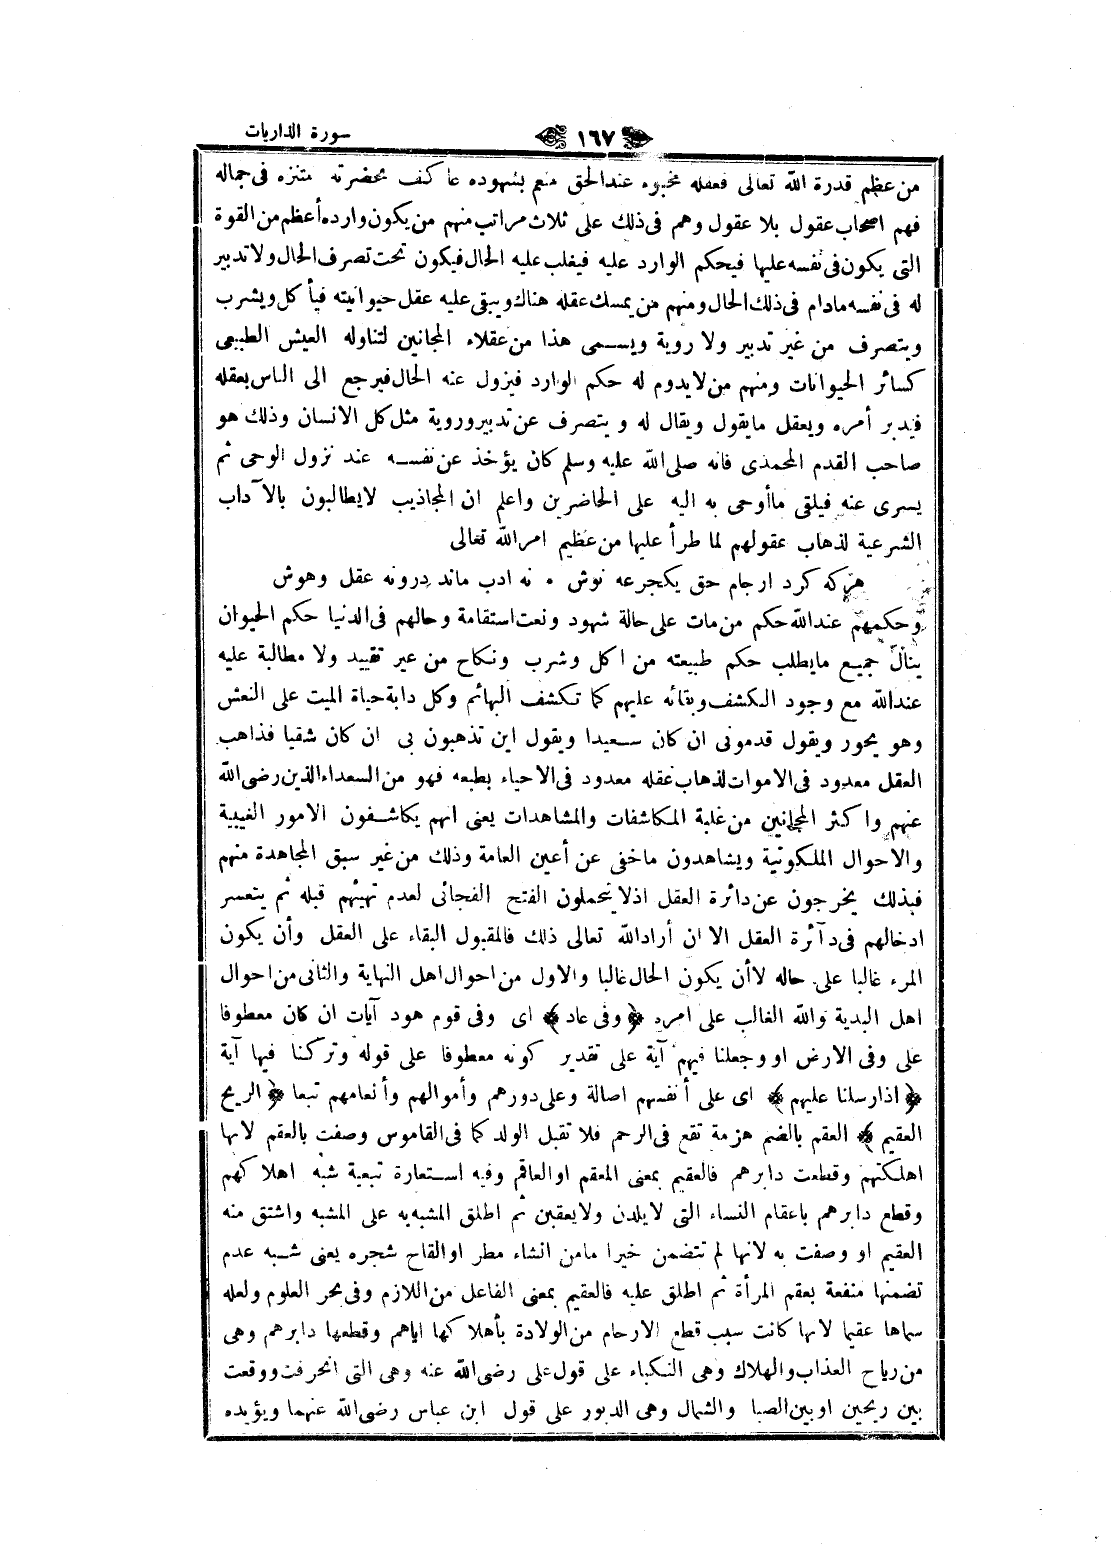 سورة الذاريات
١٦٧
من عظيم قدرة الله تعالى فعقله مخبوء عند الحق منعم بشهوده عاكف بحضرته متنزه فى جماله
فهم اصحاب عقول بلا عقول وهم فى ذلك على ثلاث مراتب منهم من يكون وارده أعظم من القوة
التى يكون فى نفسه عليها فيحكم الوارد عليه فيغلب عليه الحال فيكون تحت تصرف الحال ولا تدبير
له فى نفسه مادام فى ذلك الحال ومنهم من يمسك عقله هناك ويبقى عليه عقل حيوانيته فيأكل ويشرب
ويتصرف من غير تدبير ولا روية ويسمى هذا من عقلاء المجانين لتناوله العيش الطبيعى
كسائر الحيوانات ومنهم من لايدوم له حكم الوارد فيزول عنه الحال فيرجع الى الناس بعقله
فيدبر أمره ويعقل مايقول ويقال له ويتصرف عن تدبير وروية مثل كل الانسان وذلك هو
صاحب القدم المحمدى فانه صلى الله عليه وسلم كان يؤخذ عن نفسه عند نزول الوحى ثم
يسرى عنه فيلقى ماأوحى به اليه على الحاضرين واعلم ان المجاذيب لايطالبون بالآداب
الشرعية لذهاب عقولهم لما طرأ عليها من عظيم امر الله تعالى
هر كه كرد ازجام حق يكجرعه نوش * نه ادب ماند درونه عقل وهوش
وحكمهم عند الله حكم من مات على حالة شهود ونعت استقامة وحالهم فى الدنيا حكم الحيوان
ينال جميع مايطلب حكم طبيعته من اكل وشرب ونكاح من غير تقييد ولا مطالبة عليه
عند الله مع وجود الكشف وبقائه عليهم كما تكشف البهائم وكل دابة حياة الميت على النعش
وهو يخور ويقول قدمونى ان كان سعيدا ويقول اين تذهبون بى ان كان شقيا فذاهب
العقل معدود فى الاموات لذهاب عقله معدود فى الاحياء بطبعه فهو من السعداء الذين رضى الله
عنهم واكثر المجانين من غلبة المكاشفات والمشاهدات يعنى انهم يكاشفون الامور الغيبية
والاحوال الملكوتية ويشاهدون ماخفى عن أعين العامة وذلك من غير سبق المجاهدة منهم
فبذلك يخرجون عن دائرة العقل اذلا يتحملون الفتح الفجائى لعدم تهيئهم قبله ثم يتعسر
ادخالهم فى دآئرة العقل الا ان أراد الله تعالى ذلك فالمقبول البقاء على العقل وأن يكون
المرء غالبا على حاله لاأن يكون الحال غالبا والاول من احوال اهل النهاية والثانى من احوال
اهل البدية والله الغالب على امره ﴿وفى عاد﴾ اى وفى قوم هود آيات ان كان معطوفا
على وفى الارض او وجعلنا فيهم آية على تقدير كونه معطوفا على قوله وتركنا فيها آية
﴿اذارسلنا عليهم﴾ اى على أنفسهم اصالة وعلى دورهم وأموالهم وأنعامهم تبعا ﴿الريح
العقيم﴾ العقم بالضم هزمة تقع فى الرحم فلا تقبل الولد كما فى القاموس وصفت بالعقم لانها
اهلكتهم وقطعت دابرهم فالعقيم بمعنى المعقم او العاقم وفيه استعارة تبعية شبه اهلاكهم
وقطع دابرهم باعقام النساء التى لايلدن ولايعقبن ثم اطلق المشبه به على المشبه واشتق منه
العقيم او وصفت به لانها لم تتضمن خيرا مامن انشاء مطر او القاح شجره يعنى شبه عدم
تضمنها منفعة بعقم المرأة ثم اطلق عليه فالعقيم بمعنى الفاعل من اللازم وفى بحر العلوم ولعله
سماها عقيما لانها كانت سبب قطع الارحام من الولادة بأهلاكها اياهم وقطعها دابرهم وهى
من رياح العذاب والهلاك وهى النكباء على قول على رضى الله عنه وهى التى انحرفت ووقعت
بين ريحين او بين الصبا والشمال وهى الدبور على قول ابن عباس رضى الله عنهما ويؤيده